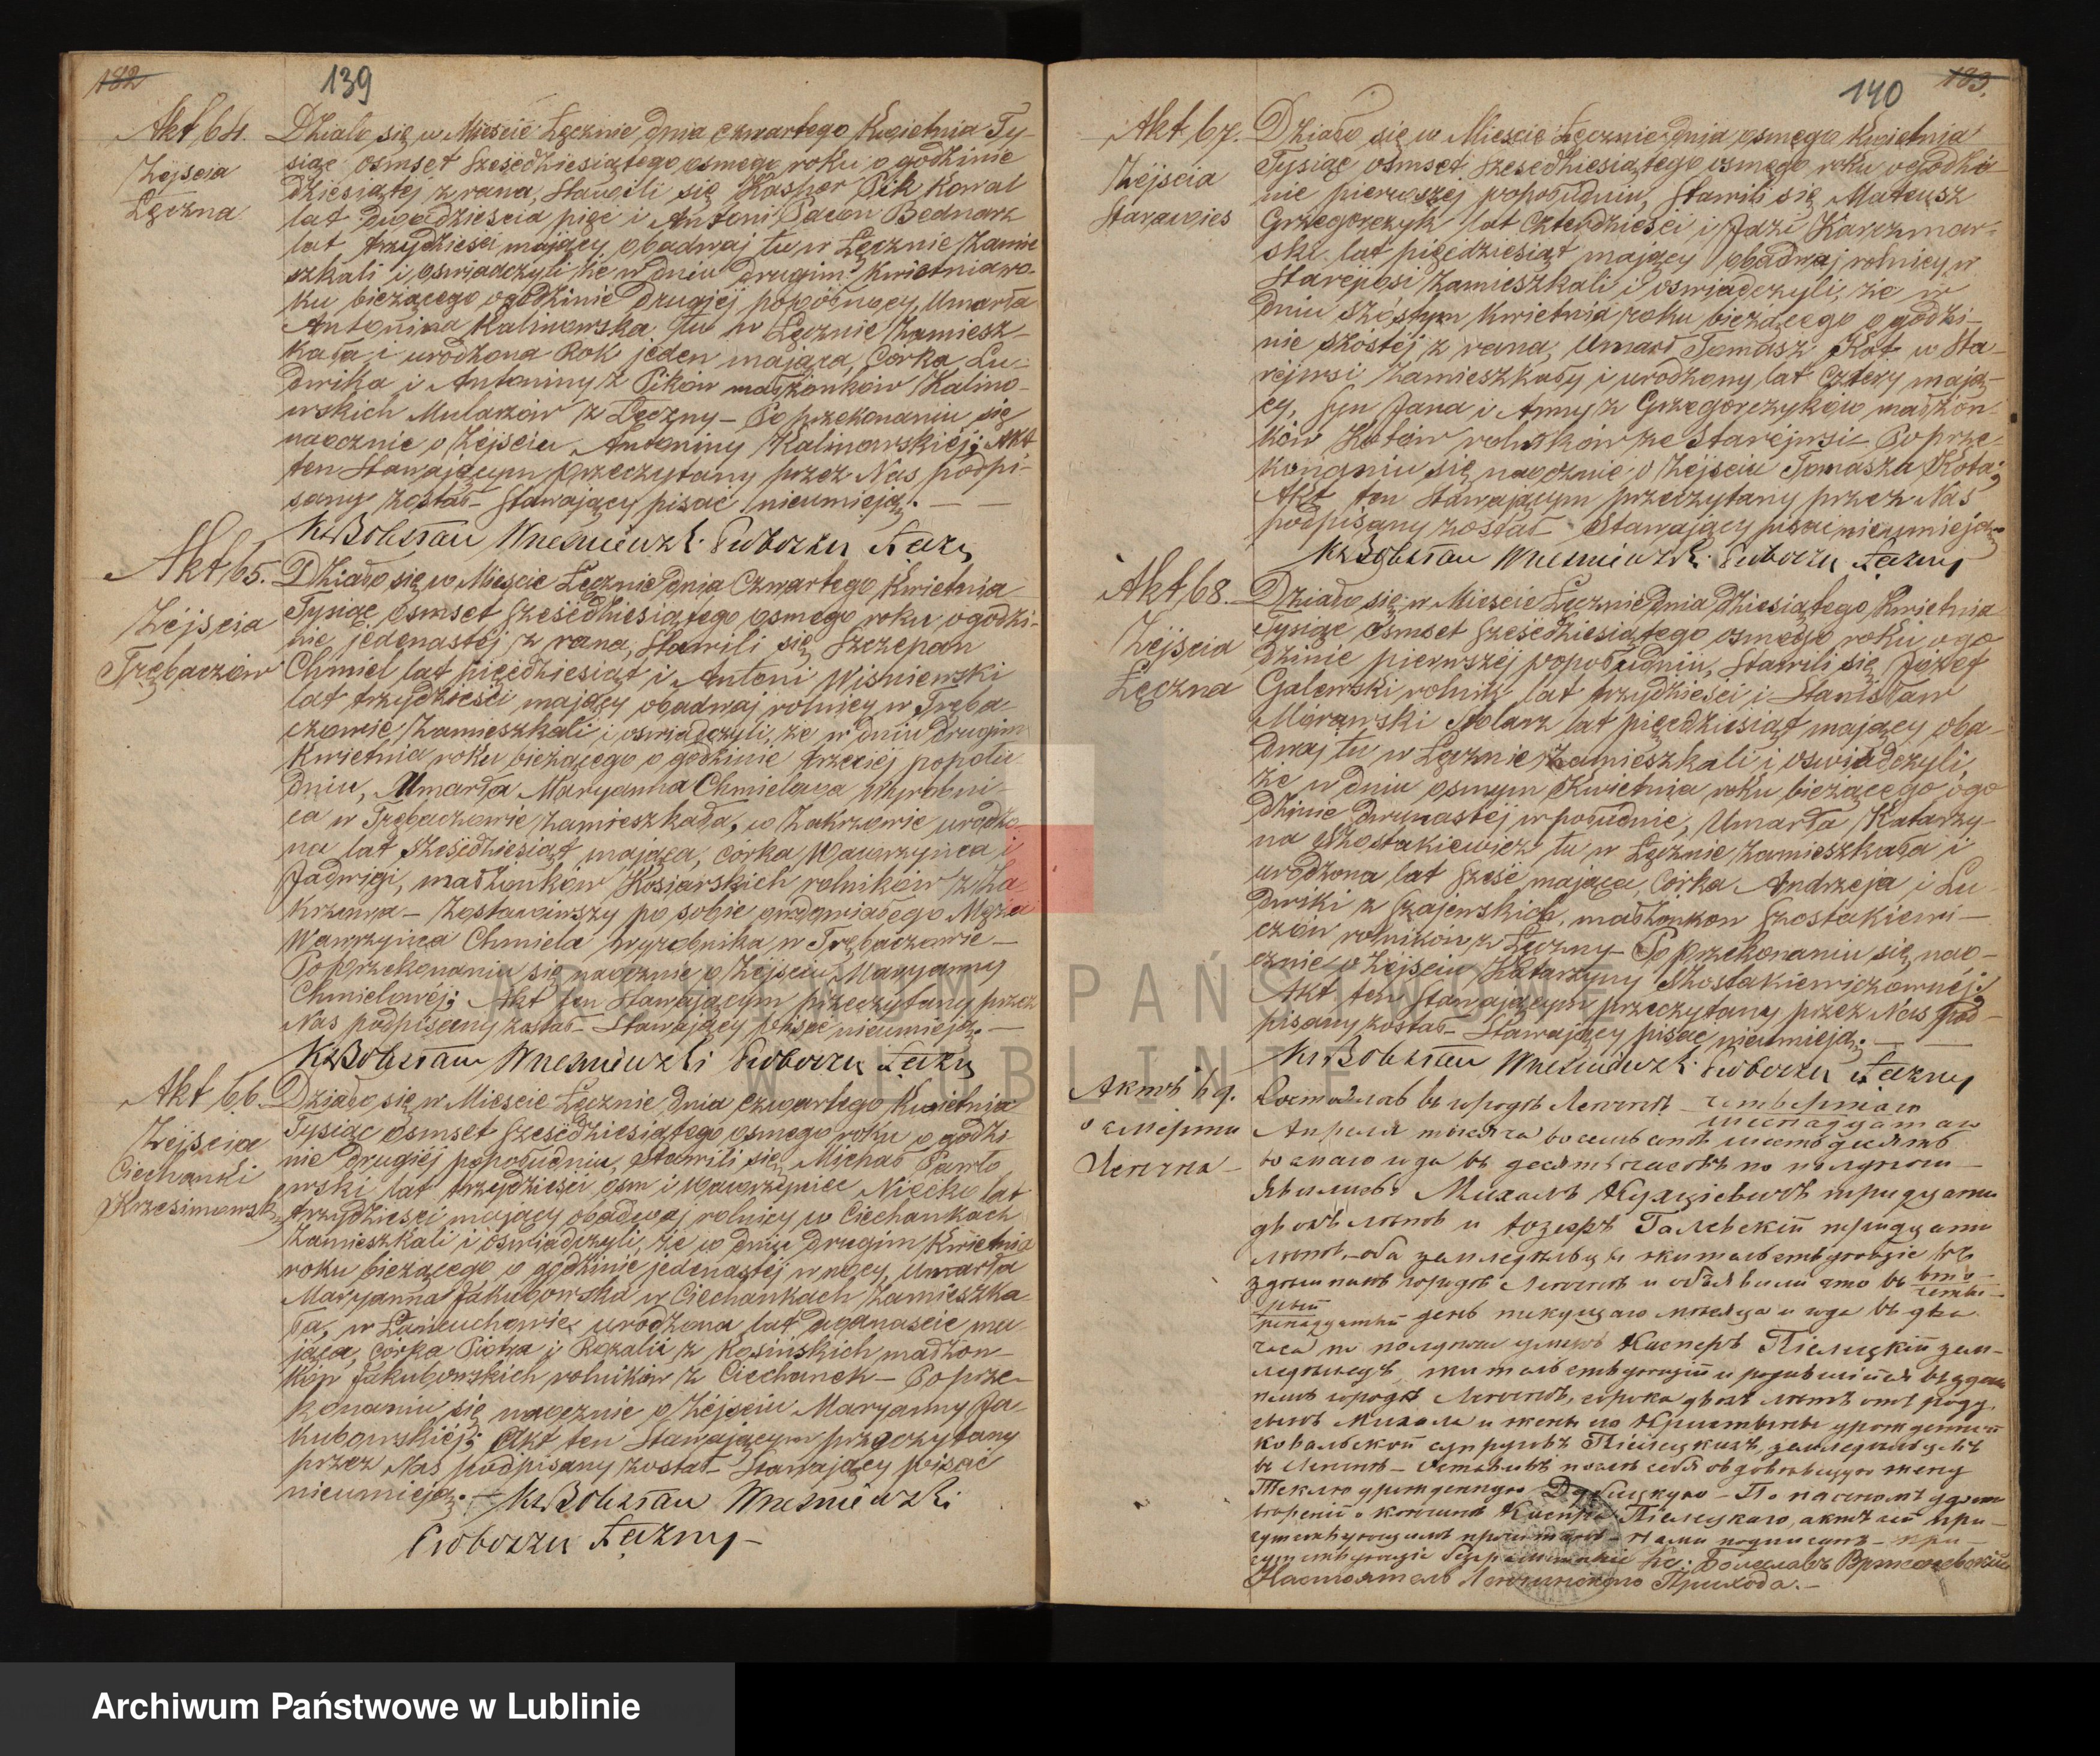 182
139
Akt 64.
Zejścia
Łęczna
Działo się w Mieście Łęcznie dnia czwartego Kwietnia Ty-
siąc osmset sześćdziesiątego osmego roku o godzinie
dziesiątej z rana, Stawili się Kasper Pik Kowal
lat dwadzieścia pięć i Antoni Pacon Bednarz
lat trzydzieści mający obadwaj tu w Łęcznie Zamie
szkali i oswiadczyli że w dniu drugim Kwietnia ro-
ku bieżącego o godzinie drugiej popółnocy, Umarła
Antonina Kalinowska tu w Łęcznie Zamiesz-
kała i urodzona Rok jeden mająca, Córka Lu-
dwika i Antoniny z Pików małżonków Kalino-
wskich Mularzów z Łęczny – Po przekonaniu się
naocznie o Zejściu Antoniny Kalinowskiej; Akt
ten Stawającym przeczytany przez Nas podpi-
sany został – Stawający pisać nieumieją. — —
Ks Bolesław Wrześniewski Proboszcz Łęczny
Akt 65.
Zejścia
Trębaczów
Działo się w Mieście Łęcznie dnia Czwartego Kwietnia
Tysiąc Osmset Sześćdziesiątego Osmego roku o godzi-
nie jedenastej z rana, Stawili się Szczepan
Chmiel lat pięćdziesiąt i Antoni Wisniewski
lat trzydzieści mający obadwaj rolnicy w Tręba-
czowie Zamieszkali i oswiadczyli, że w dniu drugim
Kwietnia roku bieżącego o godzinie trzeciej popołu
dniu, Umarła Maryanna Chmielowa Wyrobni-
ca w Trębaczowie zamieszkała, w Zakrzowie urodzo
na lat Sześćdziesiąt mająca, córka Wawrzyńca i
Jadwigi, małżonków Kosiarskich rolników z Za
krzowa – Zostawiwszy po sobie owdowiałego Męża
Wawrzyńca Chmiela wyrobnika w Trębaczowie —
Po przekonaniu się naocznie o Zejściu Maryanny
Chmielowéj; Akt ten Stawającym przeczytany przez
Nas podpisany został – Stawający pisać nieumieją. —
Ks Bolesław Wrześniewski Proboszcz Łęczny
Akt 66.
Zejścia
Ciechanki
Krzesimowsk
Działo się w Mieście Łęcznie dnia czwartego Kwietnia
Tysiąc Osmset Sześćdziesiątego osmego roku o godzi
nie drugiéj popołudniu, Stawili się Michał Pawło
wski lat trzydzieści osm i Wawrzyniec Niećko lat
trzydzieści mający obadwaj rolnicy w Ciechankach
Zamieszkali i Oswiadczyli, że w dniu drugim Kwietnia
roku bieżącego o godzinie jedenastéj w nocy, Umarła
Maryanna Jakubowska w Ciechankach Zamieszka
ła, w Łańcuchowie urodzona lat dwanaście ma
jąca, Córka Piotra i Rozalii z Kosińskich małżon-
ków Jakubowskich rolników z Ciechanek – Po prze-
konaniu się naocznie o Zejściu Maryanny Ja-
kubowskiéj; Akt ten Stawającym przeczytany
przez Nas podpisany został – Stawający pisać
nieumieją. — Ks Bolesław Wrześniewski
Proboszcz Łęczny –
183.
140
Akt 67.
Zejścia
Starawies
Działo się w Mieście Łęcznie dnia osmego Kwietnia
Tysiąc osmset sześćdziesiątego osmego roku o godzi-
nie pierwszej popołudniu, Stawili się Mateusz
Grzegorczyk lat Czterdzieści i Józef Karczmar-
ski lat pięćdziesiąt mający obadwaj rolnicy w
Starejwsi Zamieszkali i oswiadczyli, że w
dniu Szóstym Kwietnia roku bieżącego o godzi-
nie szóstéj z rana, Umarł Tomasz Kot w Sta-
rejwsi Zamieszkały i urodzony lat Cztery mają-
cy, Syn Jana i Anny z Grzegorczyków małżon-
ków Kotów rolników ze Staréjwsi – Po prze-
konaniu się naocznie o Zejściu Tomasza Kota;
Akt ten Stawającym przeczytany przez Nas
podpisany został – Stawający pisać nieumieją.
Ks Bolesław Wrześniewski Proboszcz Łęczny
Akt 68.
Zejścia
Łęczna
Działo się w Mieście Łęcznie dnia dziesiątego Kwietnia
Tysiąc Osmset Sześćdziesiątego osmego roku o go
dzinie pierwszéj popołudniu, Stawili się Józef
Galewski rolnik lat trzydzieści i Stanisław
Morawski Stolarz lat pięćdziesiąt mający oba-
dwaj tu w Łęcznie Zamieszkali i Oswiadczyli,
że w dniu osmym Kwietnia roku bieżącego o go
dzinie dwunastéj w południe, Umarła Katarzy-
na Szostakiewicz tu w Łęcznie Zamieszkała i
urodzona lat Sześć mająca, Córka Andrzeja i Lu-
dwiki z Szajewskich, małżonkow Szostakiewi-
czów rolników z Łęczny – Po przekonaniu się nao-
cznie o Zejściu Katarzyny Szostakiewiczównéj;
Akt ten Stawającym przeczytany przez Nas pod-
pisany został – Stawający pisać nieumieją. — —
Ks Bolesław Wrześniewski Proboszcz Łęczny
Актъ 69.
о смерти
Ленчна –
Состоялось въ городѣ Ленчнѣ четвертаго
шеснадцатаго
Апрѣля тысяча восемь сотъ шестьдесятъ
восьмаго года въ десять часовъ по полуночи –
Явились Михалъ Кухцевичъ тридцати
двохъ лѣтъ и Іозефъ Галевскій тридцати
лѣтъ – оба земледѣльцы жительствующіе въ
здѣшнемъ городѣ Ленчнѣ и объявили что въ вто-
рый четырнадцатый день текущаго мѣсяца и года въ два
часа по полуночи умеръ Касперъ Пѣлецкій зем-
ледѣлецъ, жительствующій и родившійся въ здѣш
немъ городѣ Ленчнѣ, сорока двохъ лѣтъ отъ роду,
сынъ Михала и жены его Кристины урожденной
Ковальской супруговъ Пѣлецкихъ, земледѣльцевъ
въ Ленчнѣ – Оставивъ послѣ себя овдовѣвшую жену
Теклю урожденную – По наочномъ удосто
вѣреніи о кончинѣ Каспра Пѣлецкаго, актъ сей при-
сутствующимъ прочитанъ – Нами подписанъ – при-
сутствующіе безграмотные Кс: Болеславъ Врже​сневскій
Настоятель Ленчинскаго Прихода. –
ARCHIWUM PAŃSTWOWE
W LUBLINIE
Archiwum Państwowe w Lublinie